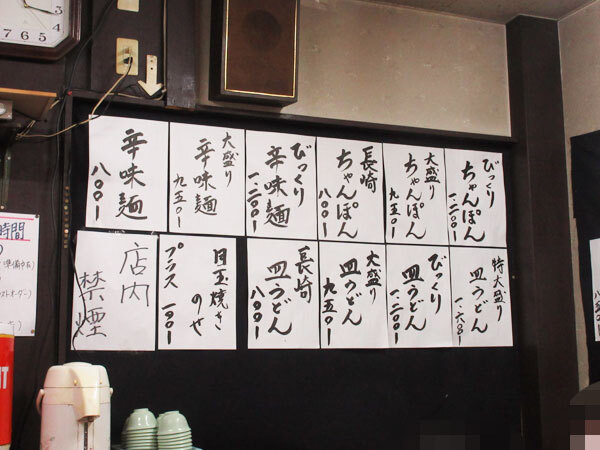 びっくり
ちゃんぽん
一.二〇〇ー
大盛り
ちゃんぽん
九五〇ー
長崎
ちゃんぽん
八〇〇ー
びっくり
辛味麺
一.二〇〇ー
大盛り
辛味麺
九五〇ー
辛味麺
八〇〇ー
特大盛り
皿うどん
一.六〇ー
びっくり
皿うどん
一.二〇〇ー
大盛り
皿うどん
九五〇ー
長崎
皿うどん
八〇〇ー
目玉焼き
のせ
プラス 一〇〇ー
店内
禁煙
時間